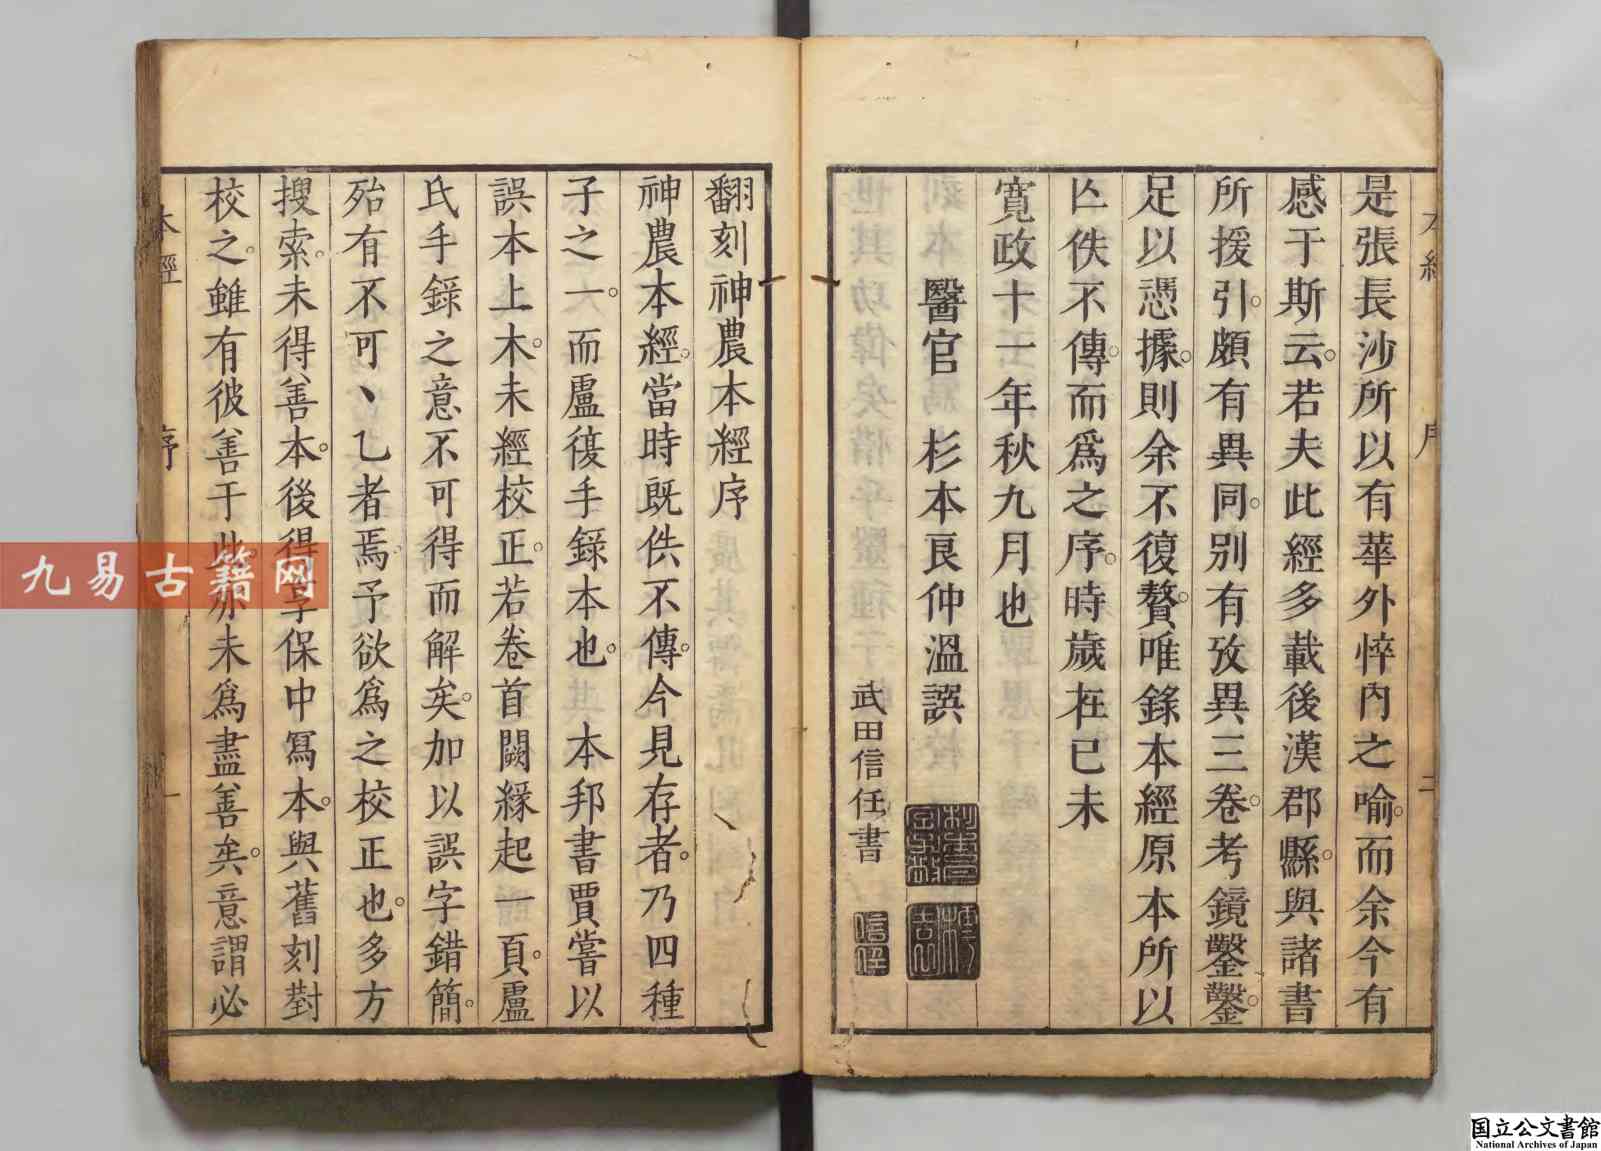 是張長沙所以有華外悴內之喻。而余今有
感于斯云。若夫此經多載後漢郡縣。與諸書
所援引。頗有異同。別有攷異三卷。考鏡鑿鑿。
足以憑據。則余不復贅。唯錄本經原本所以
亾佚不傳。而爲之序。時歲在己未
寛政十一年秋九月也
醫官　杉本良仲溫誤
武田信任書
信任
翻刻神農本經序
神農本經。當時既佚不傳。今見存者。乃四種
子之一。而盧復手錄本也。本邦書賈嘗以
誤本上木。未經校正。若卷首闕緣起一頁。盧
氏手錄之意不可得而解矣。加以誤字錯簡。
殆有不可丶乙者焉。予欲爲之校正也。多方
搜索。未得善本。後得享保中寫本。與舊刻對
校之。雖有彼善于此。亦未爲盡善矣。意謂必
本經
序
一
本經
序
二
九易古籍网
国立公文書館
National Archives of Japan